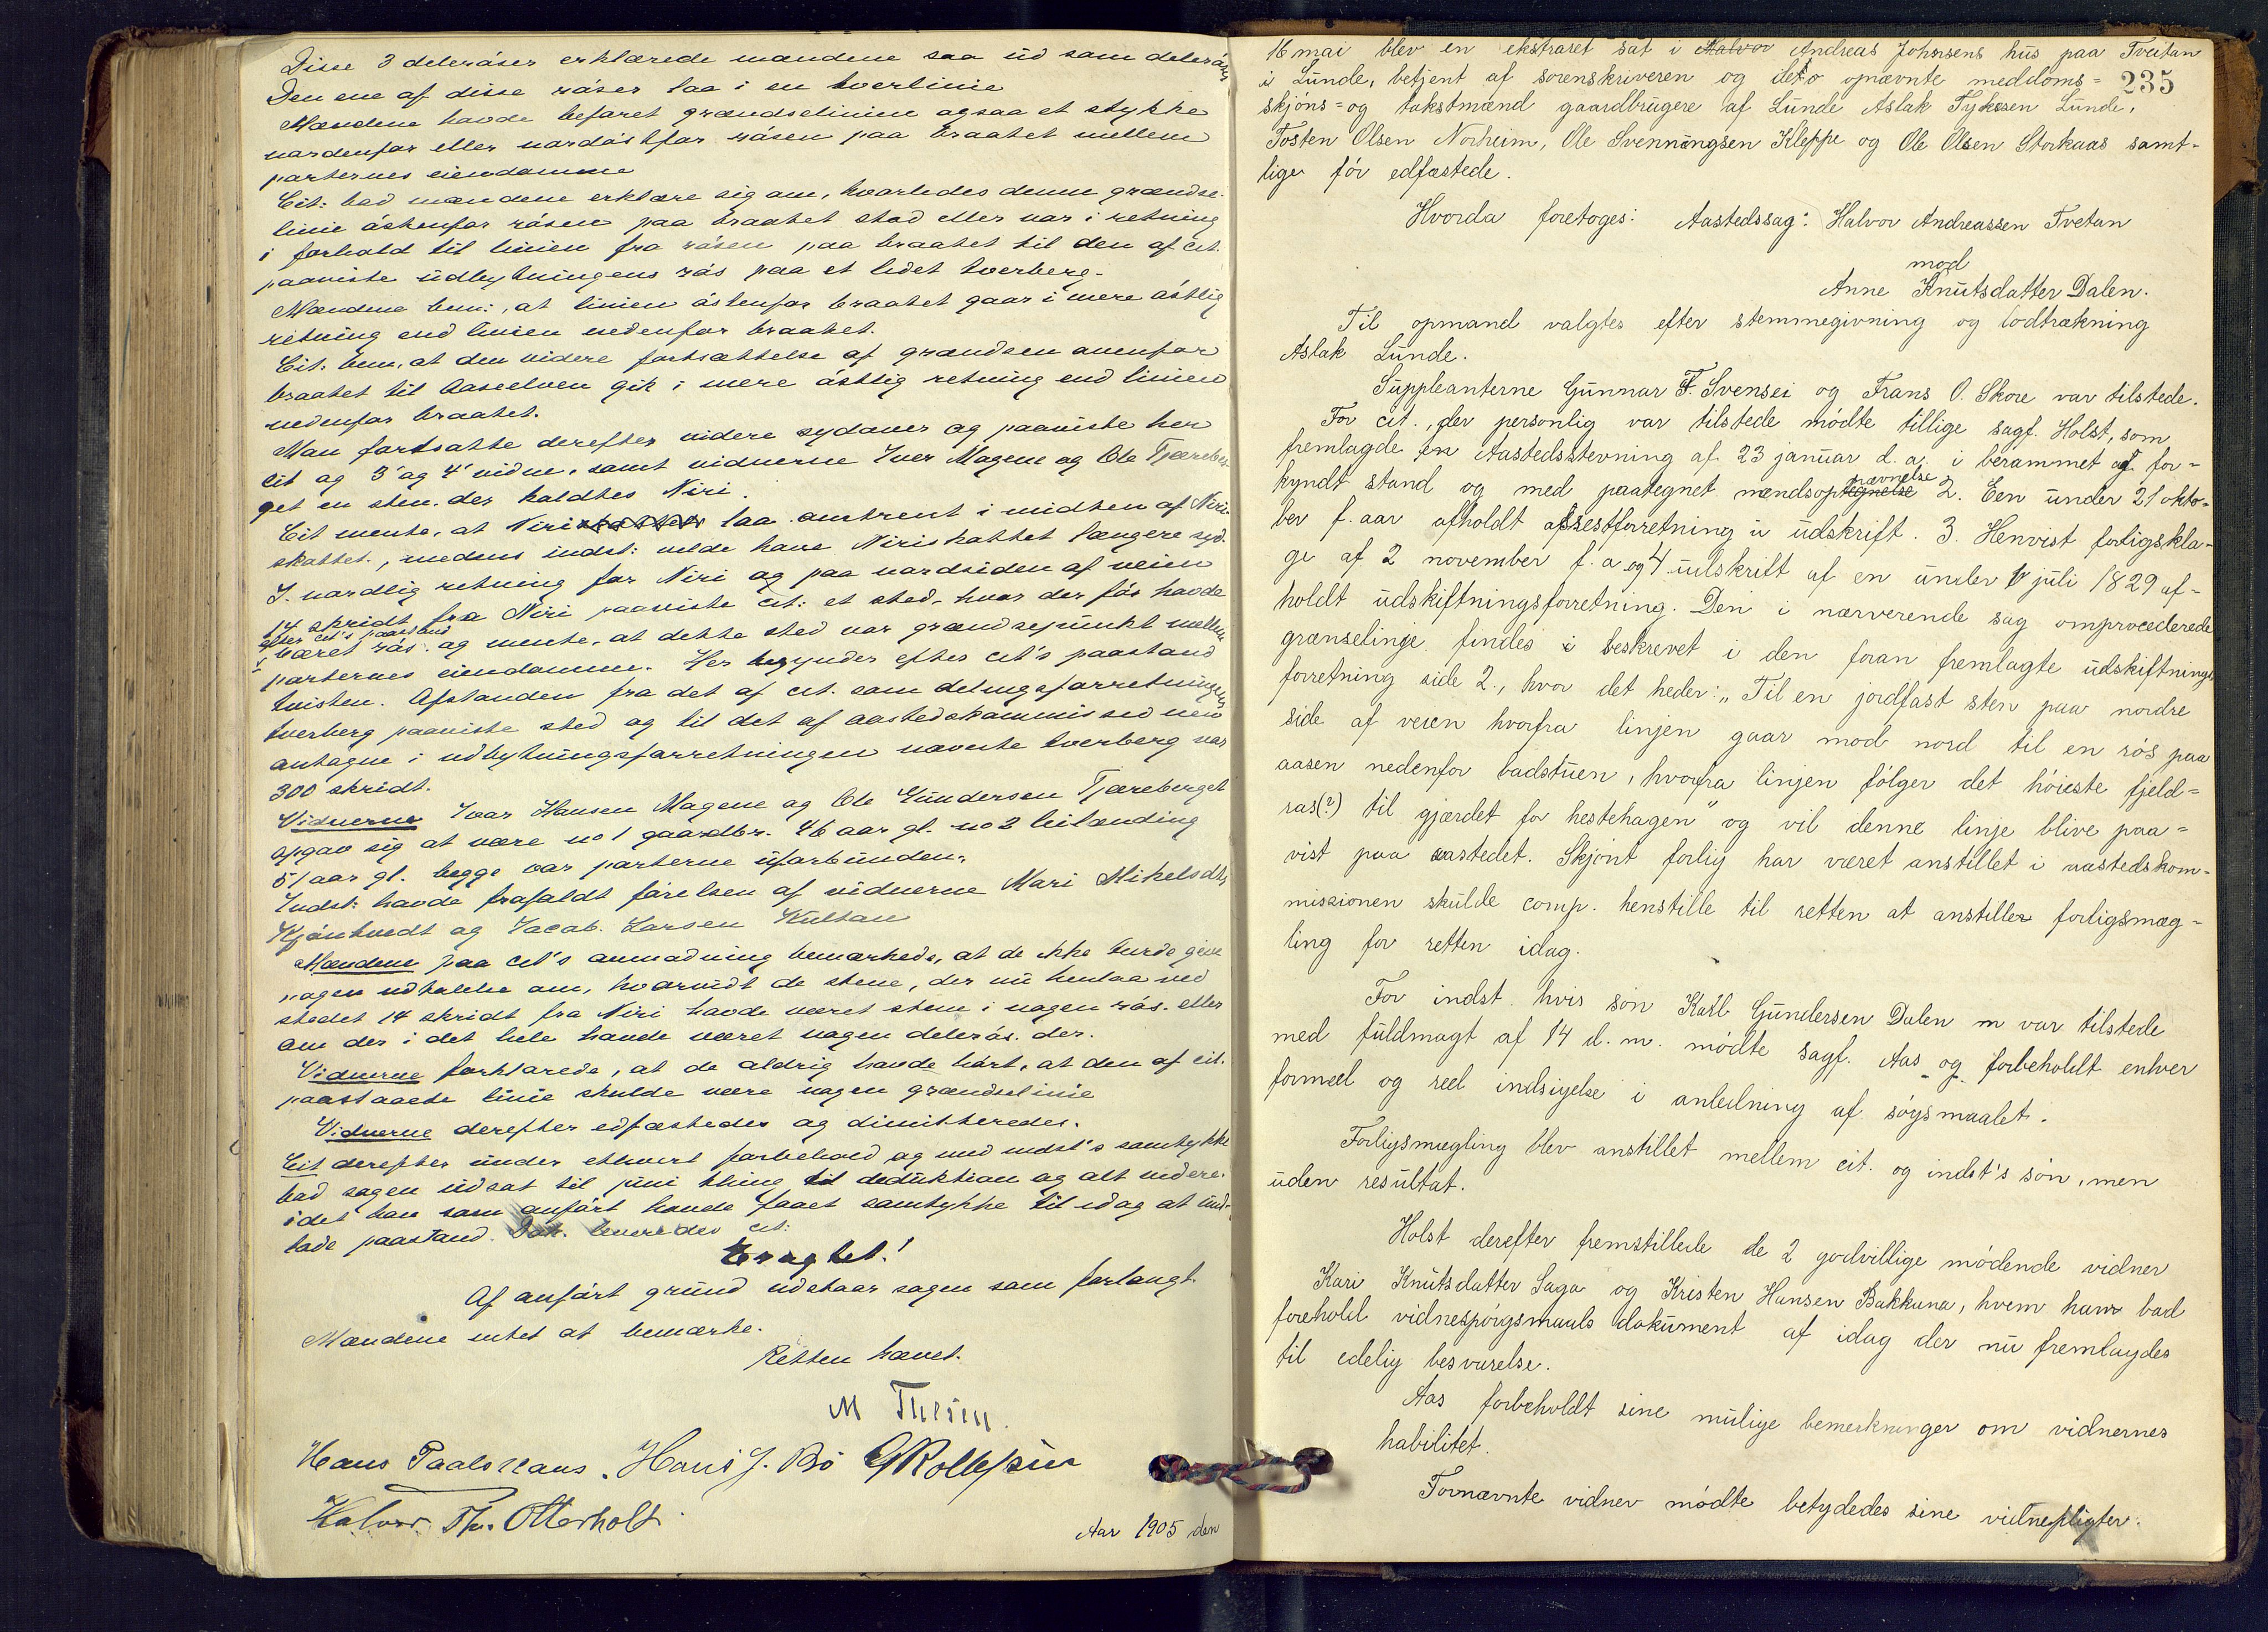 Disse 3 deleröser erklærede mændene saa ud som deleröser
Den ene af disse röser laa i en tverlinie
Mændene havde befaret grændselinien ogsaa et stykke
nordenfor eller nordöstfor rösen paa braatet mellem
parternes eiendomme
Cit: bad mændene erklære sig om, hvorledes denne grændse-
linie östenfor rösen paa braatet stod eller var i retning
i forhold til linien fra rösen paa braatet til den af cit.
paaviste udbytningens rös paa et lidet tverberg.
Mændene bem:, at linien östenfor braatet gaar i mere östlig
retning end linien nedenfor braatet.
Cit. bem, at den videre fortsættelse af grændsen ovenfor
braatet til Aaseelven gik i mere östlig retning end linien
nedenfor braatet.
Man fortsatte derefter videre sydover og paaviste her
cit og 3' og 4' vidne, samt vidnerne Iver Magene og Ole Tjæreber-
get en sten der kaldtes Niri.
Cit mente, at Niri laa omtrent i midten af Niri-
skattet, medens indst: vilde have Niriskattet længere syd.
I nordlig retning for Niri og paa nordsiden af veien
14 skridt fra Niri paaviste cit: et sted, hvor der för havde
efter cit's paastand
været rös. og mente, at dette sted var grændsepunkt mellem
parternes eiendomme. Her begynder efter cit's paastand
tvisten. Afstanden fra det af cit. som delingsforretningens
tverberg paaviste sted og til det af aastedskommissionen
antagne i udbytningsforretningen nævnte tverberg var
300 skridt.
Vidnerne Ivar Hansen Magene og Ole Gundersen Tjæreberget
opgav sig at være no 1 gaardbr. 46 aar gl. no 2 leilænding
51 aar gl. begge var parterne uforbunden.
Indst: havde frafaldt förelsen af vidnerne Mari Mikelsdtr
Kjöntvedt og Jacob Larsen Kultan
Mændene paa cit's anmodning bemærkede, at de ikke turde give
nogen udtalelse om, hvorvidt de stene, der nu henlaa ved
stedet 14 skridt fra Niri havde været sten i nogen rös. eller
om der i det hele havde været nogen delerös. der.
Vidnerne forklarede, at de aldrig havde hört, at den af cit.
paastaaede linie skulde være nogen grændselinie
Vidnerne derefter edfæstedes og dimitteredes.
Cit derefter under ethvert forbehold og med indst's samtykke
bad sagen udsat til juni thing til deduktion og alt videre.
idet han som anfört havde faaet samtykke til idag at und-
lade paastand. Dok. leveredes cit:
Eragtet!
Af anfört grund udstaar sagen som forlangt.
Mændene intet at bemærke.
Retten hævet.
M Thesen.
Hans Paalsnaas. Hans J. Bö G Rollefsen
Halvor Th. Otterholt
Aar 1905 den
235
16 mai blev en ekstraret sat i Halvor Andreas Johnsens hus paa Tveitan
i Lunde, betjent af sorenskriveren og detto opnævnte meddoms=
skjöns= og takstmænd gaardbrugere af Lunde Aslak Tykesen Lunde,
Tosten Olsen Norheim, Ole Svenningsen Kleppe og Ole Olsen Storkaas samt-
lige för edfæstede.
Hvorda foretoges: Aastedssag: Halvor Andreassen Tvetan
mod
Anne Knutsdatter Dalen.
Til opmand valgtes efter stemmegivning og lodtrækning
Aslak Lunde.
Suppleanterne Gunnar F. Svensei og Frans O. Skore var tilstede.
For cit., der personlig var tilstede mödte tillige sagf. Holst, som
fremlagde en Aastedsstevning af 23 januar d. a. i berammet og for-
kyndt stand og med paategnet mændsoptegnelse 2. Een under 21 okto-
nævnelse
ber f. aar afholdt afsestforretning i udskrift. 3. Henvist forligskla-
ge af 2 november f. a og 4 udskrift af en under 1 juli 1829 af-
holdt udskiftningsforretning. Den i nærverende sag omprocederede
grænselinje findes i beskrevet i den foran fremlagte udskiftnings
forretning side 2., hvor det heder: „Til en jordfast sten paa nordre
side af veien hvorfra linjen gaar mod nord til en rös paa
aasen nedenfor badstuen, hvorfra linjen fölger det höieste fjeld=
ras(?) til gjærdet for hestehagen" og vil denne linje blive paa=
vist paa aastedet. Skjönt forlig har været anstillet i aastedskom-
missionen skulde comp. henstille til retten at anstiller forligsmæg-
ling for retten idag.
For indst. hvis sön Karl Gundersen Dalen m var tilstede
med fuldmagt af 14 d. m. mödte sagf. Aas og forbeholdt enhver
formel og reel indsigelse i anledning af sögsmaalet.
Forligsmægling blev anstillet mellem cit. og indst's sön, men
uden resultat.
Holst derefter fremstillede de 2 godvillige mödende vidner
Kari Knutsdatter Saga og Kristen Hansen Bakkuna, hvem han bad
forehold vidnespörgsmaals dokument af idag der nu fremlagdes
til edelig besvarelse.
Aas forbeholdt sine mulige bemerkninger om vidnernes
habilitet.
Fornævnte vidner mödte betydedes sine vidnepligter.